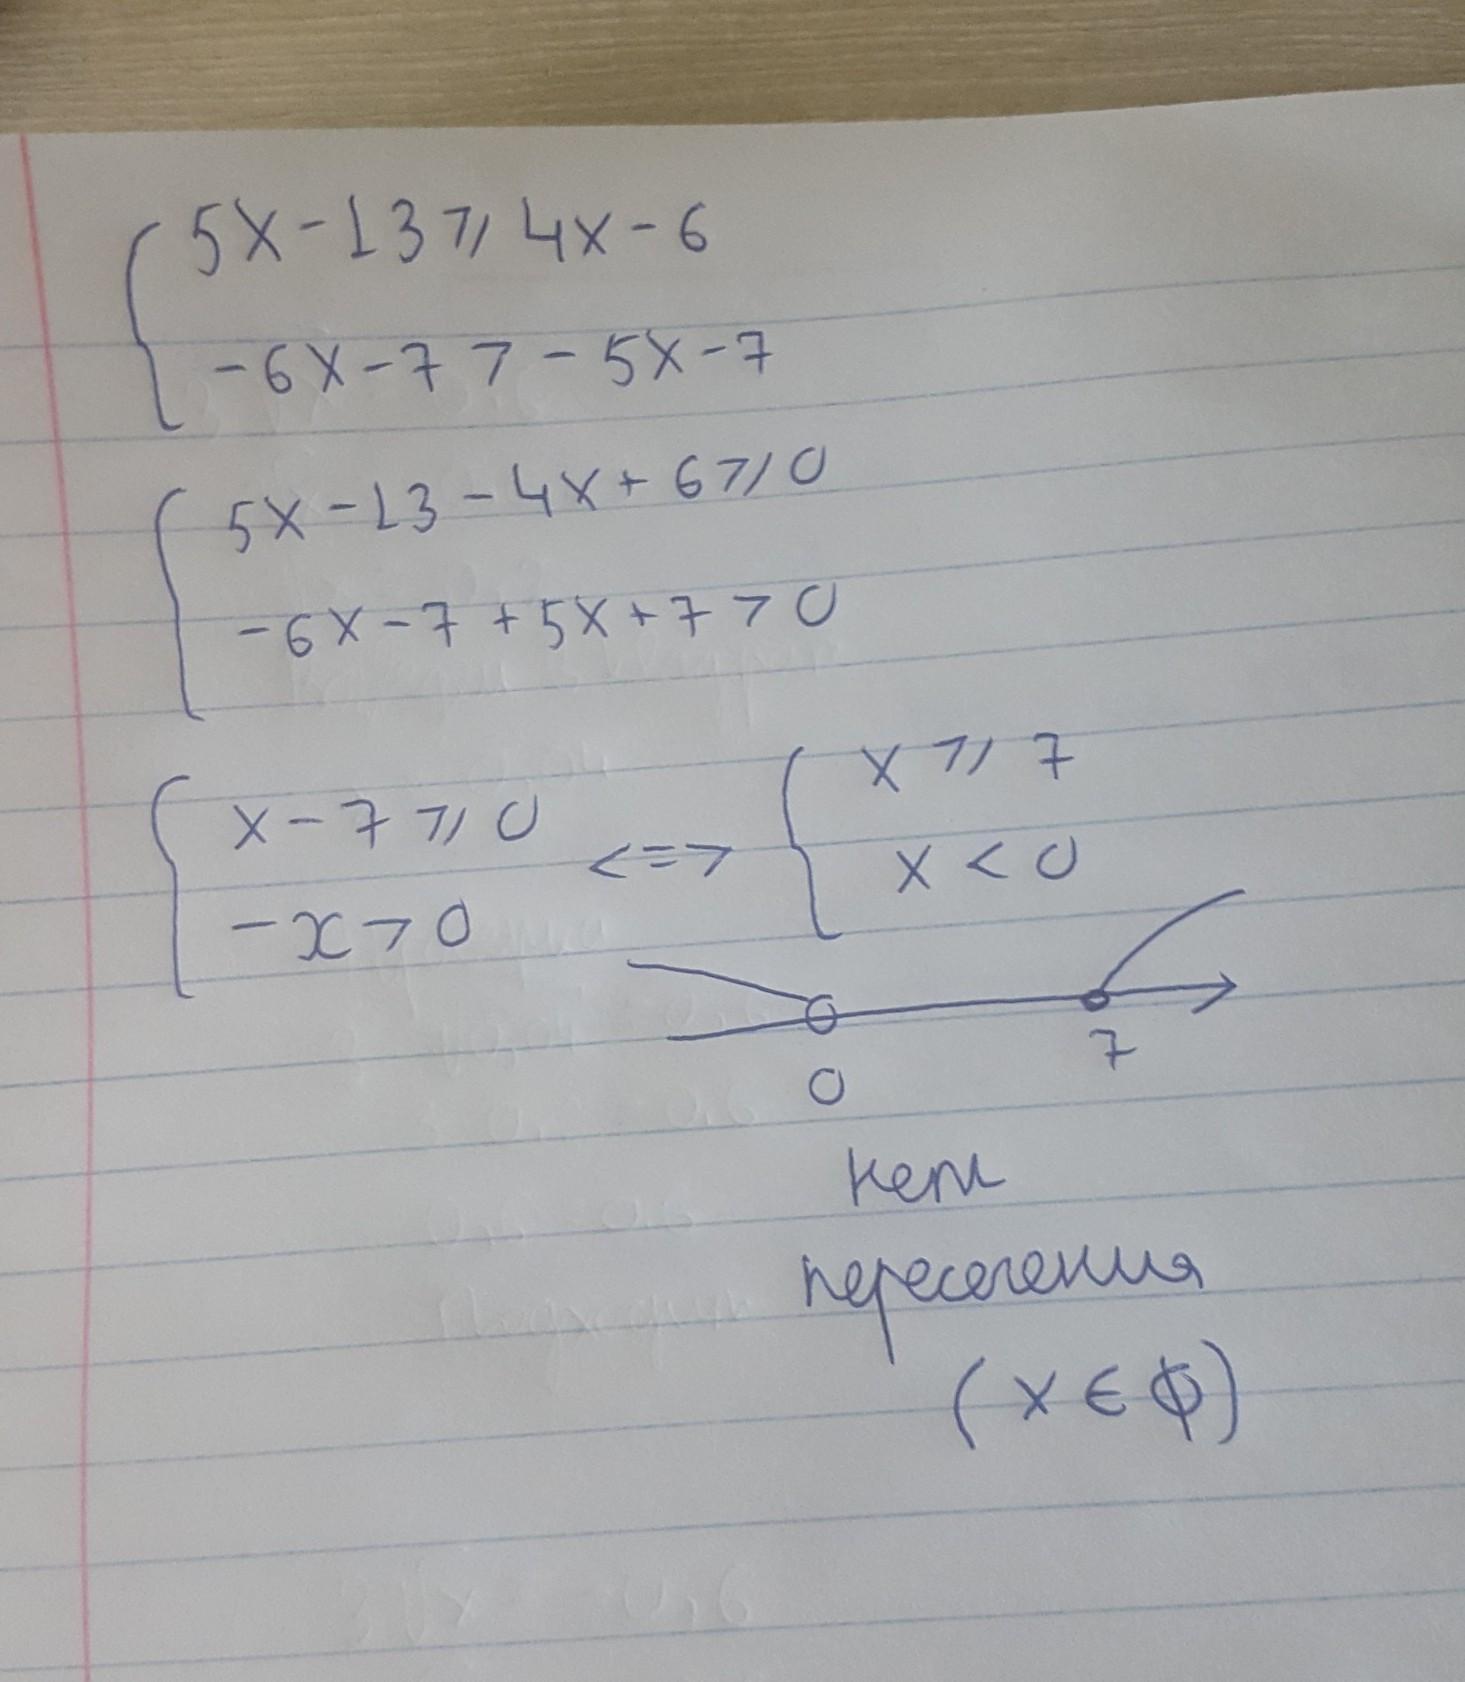 5x-13⩾4x-6
-6x-7>-5x-7
5x-13-4x+6⩾0
-6x-7+5x+7>0
x-7⩾0 <=> x⩾7
-x>0 x<0
0 7
нет
пересечения
(x∈ϕ)